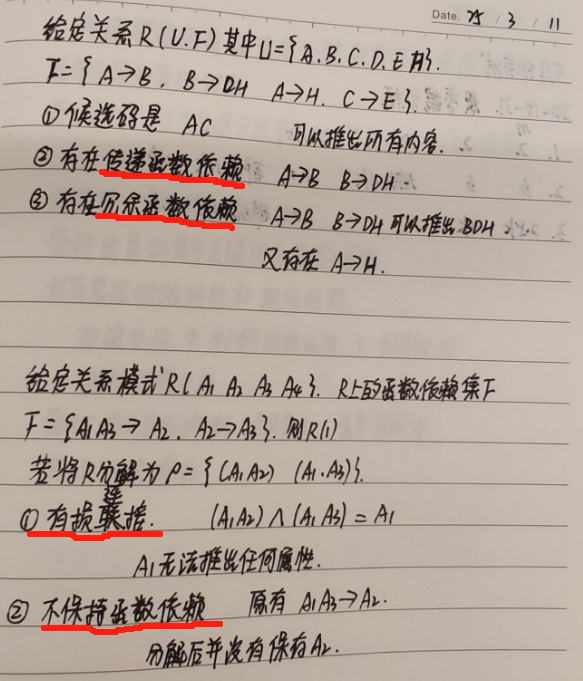 Date. 25 / 3 / 11
给定关系R(U.F)其中U={A.B.C.D.E.H}.
F={A→B. B→DH A→H. C→E}.
①候选码是 AC 可以推出所有内容.
②存在传递函数依赖 A→B B→DH.
③存在冗余函数依赖 A→B B→DH可以推出BDH.
又存在 A→H.
给定关系模式R(A1 A2 A3 A4}. R上的函数依赖集F
F={A1A3→A2. A2→A3}. 则R()
若将R分解为ρ={(A1A2) (A1.A3)}.
①有损连接. (A1A2)∧(A1A3)=A1
A1无法推出任何属性.
②不保持函数依赖 原有 A1A3→A2.
分解后并没有保存A2.